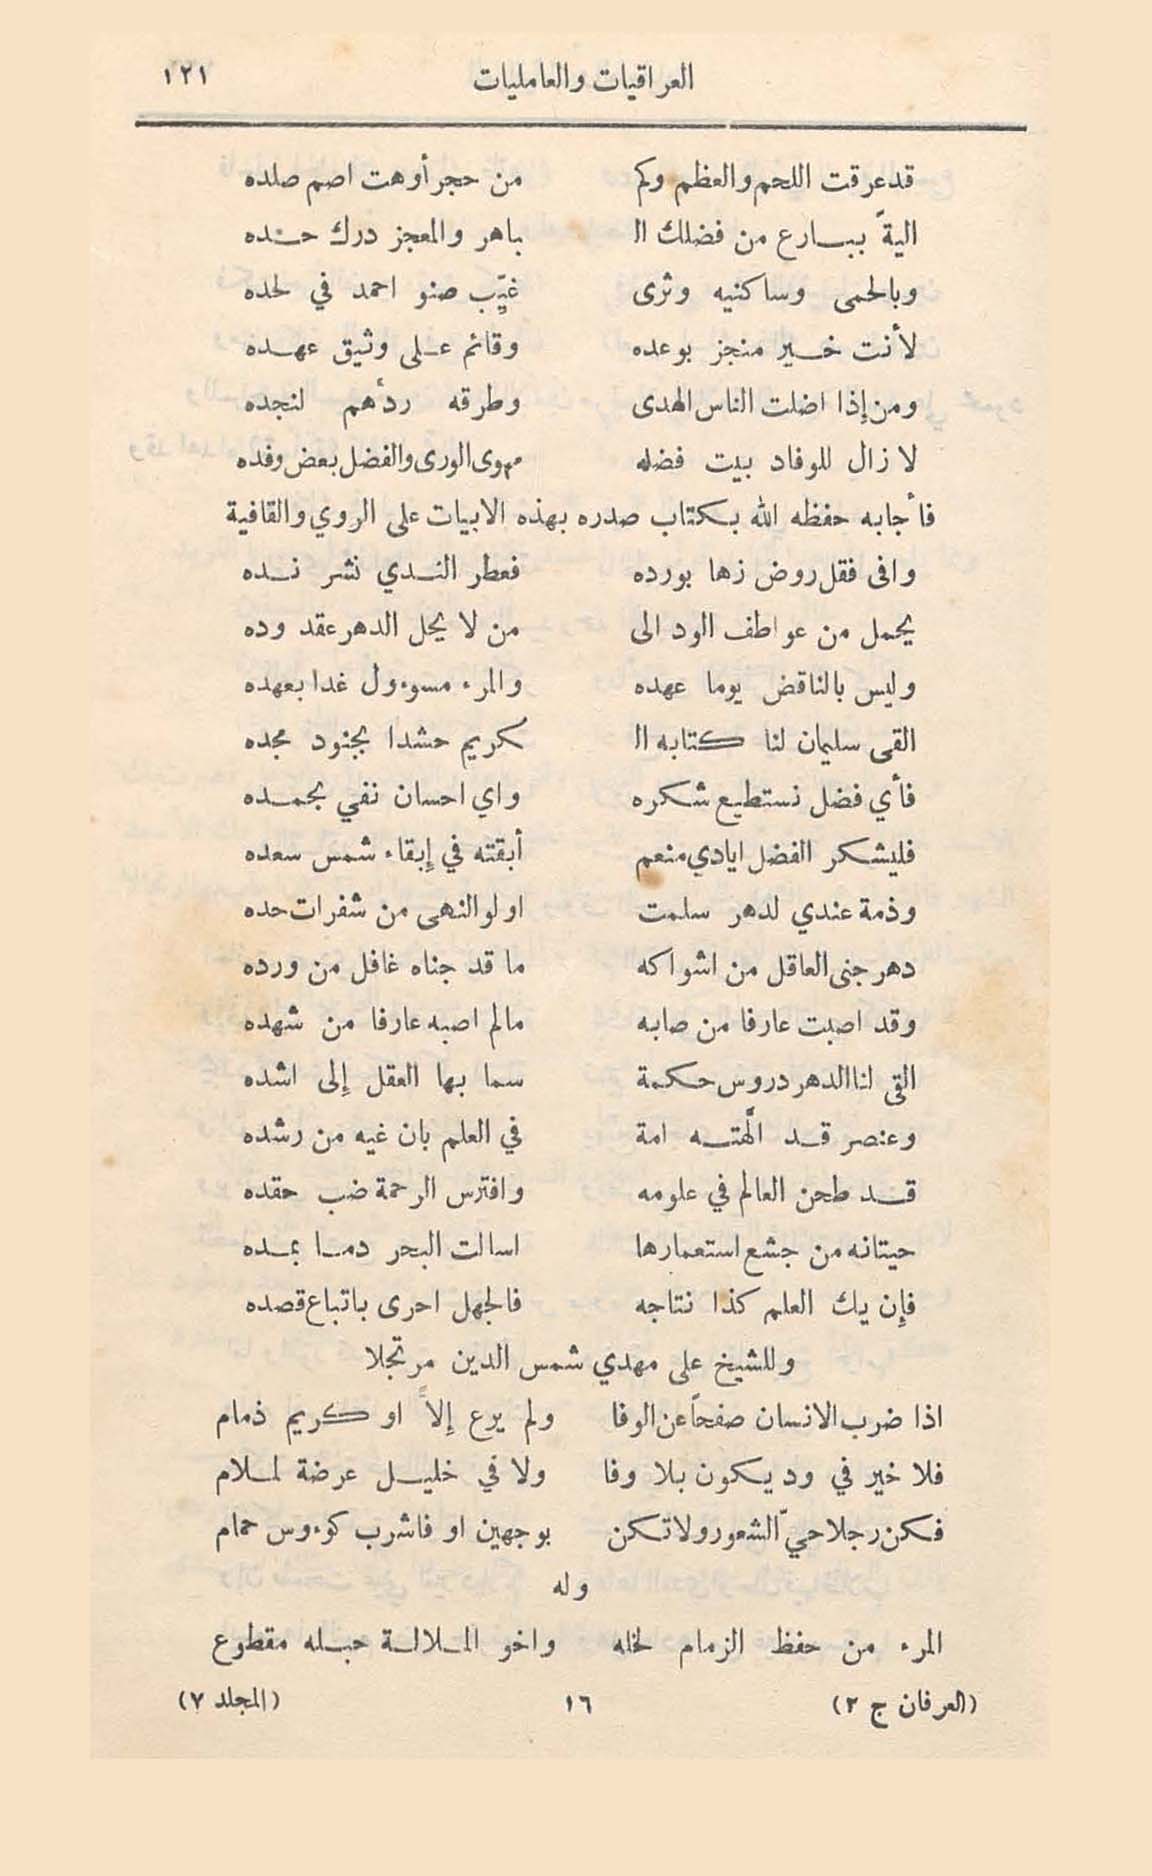 العراقيات والعامليات ١٢١
قد عرقت اللحم والعظم وكم من حجر أوهت اصم صلده
اليةً ببارع من فضلك ال باهر والمعجز درك حده
وبالحمى وساكنيه وثرى غيّب صنو احمد في لحده
لأنت خير منجز بوعده وقائم على وثيق عهده
ومن إذا اضلت الناس الهدى وطرقه ردأهم لنجده
لا زال للوفاد بيت فضله مهوى الورى والفضل بعض وفده
فأجابه حفظه الله بكتاب صدره بهذه الابيات على الروي والقافية
وافى فقل روض زها بورده فعطر الندي نشر نده
يحمل من عواطف الود الى من لا يحل الدهر عقد وده
وليس بالناقض يوما عهده والمرء مسوءول غدا بعهده
القى سليمان لنا كتابه ال كريم حشدا بجنود مجده
فأي فضل نستطيع شكره واي احسان نفي بحمده
فليشكر الفضل ايادي منعم أبقته في إبقاء شمس سعده
وذمة عندي لدهر سلمت اولو النهى من شفرات حده
دهر جنى العاقل من اشواكه ما قد جناه غافل من ورده
وقد اصبت عارفا من صابه مالم اصبه عارفا من شهده
القى لنا الدهر دروس حكمة سما بها العقل إلى اشده
وعنصر قد الّهته امة في العلم بان غيه من رشده
قد طحن العالم في علومه وافترس الرحمة ضب حقده
حيتانه من جشع استعمارها اسالت البحر دما بمده
فإن يك العلم كذا نتاجه فالجهل احرى باتباع قصده
وللشيخ على مهدي شمس الدين مرتجلا
اذا ضرب الانسان صفحاً عن الوفا ولم يرع إلاً او كريم ذمام
فلا خير في ود يكون بلا وفا ولا في خليل عرضة لملام
فكن رجلا حيّ الشعور ولا تكن بوجهين او فاشرب كوءوس حمام
وله
المرء من حفظ الزمام لخله واخو الملالة حبله مقطوع
(العرفان ج ٢) ١٦ (المجلد ٧)